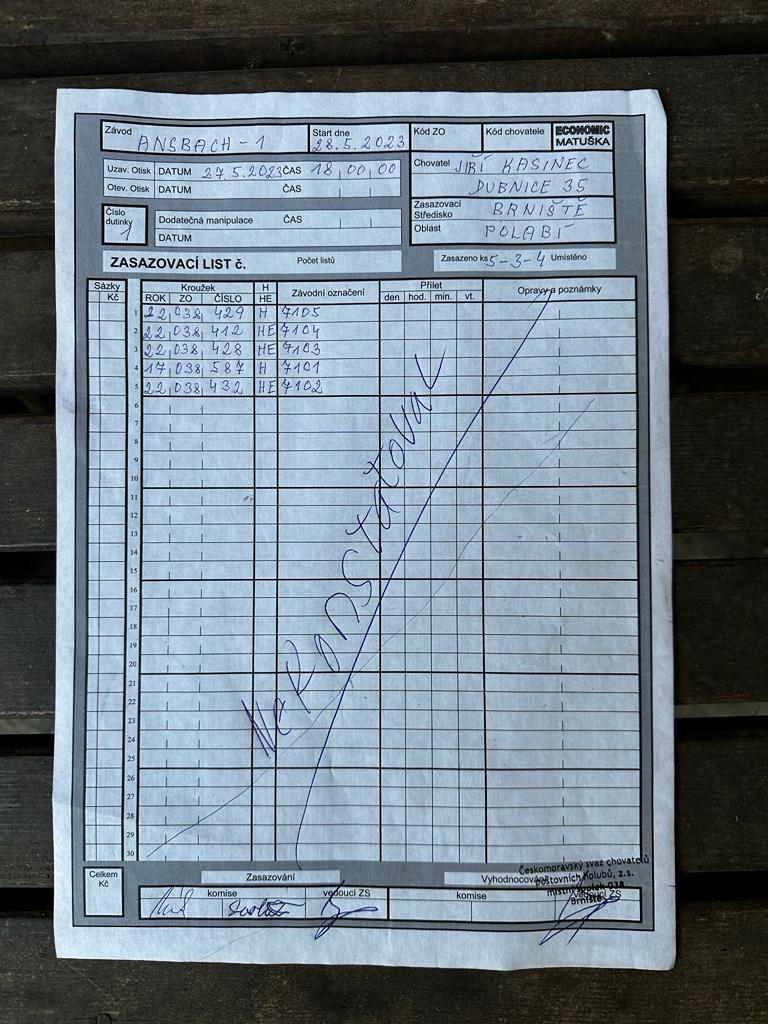 Závod ANSBACH - 1 Start dne 28.5.2023 Kód ZO Kód chovatele ECONOMIC MATUŠKA
Uzav. Otisk DATUM 27.5.2023 ČAS 18 00 00
Otev. Otisk DATUM ČAS
Chovatel JIŘÍ KASINEC
DUBNICE 35
Číslo dutinky 1
Dodatečná manipulace ČAS
DATUM
Zasazovací Středisko BRNIŠTĚ
Oblast POLABÍ
ZASAZOVACÍ LIST č. Počet listů Zasazeno ks 5-3-4 Umístěno
Sázky Kroužek H Závodní označení Přílet Opravy a poznámky
Kč ROK ZO ČÍSLO HE den hod. min. vt.
1 22 038 429 H 7105
2 22 038 412 HE 7104
3 22 038 428 HE 7103
4 17 038 587 H 7101
5 22 038 432 HE 7102
6
7
8
9
10
11
12
13
14
15
16
17
18
19
20
21
22
23
24
25
26
27
28
29
30
Celkem Kč
Zasazování Vyhodnocování
komise vedoucí ZS komise vedoucí ZS
Českomoravský svaz chovatelů
poštovních holubů, z.s.
místní spolek 038
Brniště